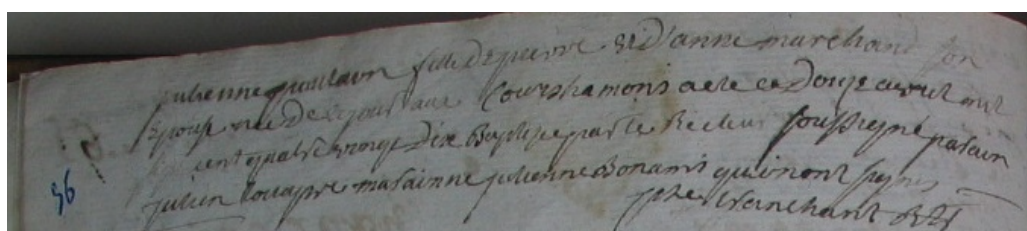 julienne guillaun fille de pierre et d'anne marchand son
Epouse née de ce jour au Courshamons a ete ce Douze avout mil
cent quatre vingt Dix Baptisee par le Recteur soussigné parain
julien Louapre marainne julienne Bonamis qui n'ont signés
96